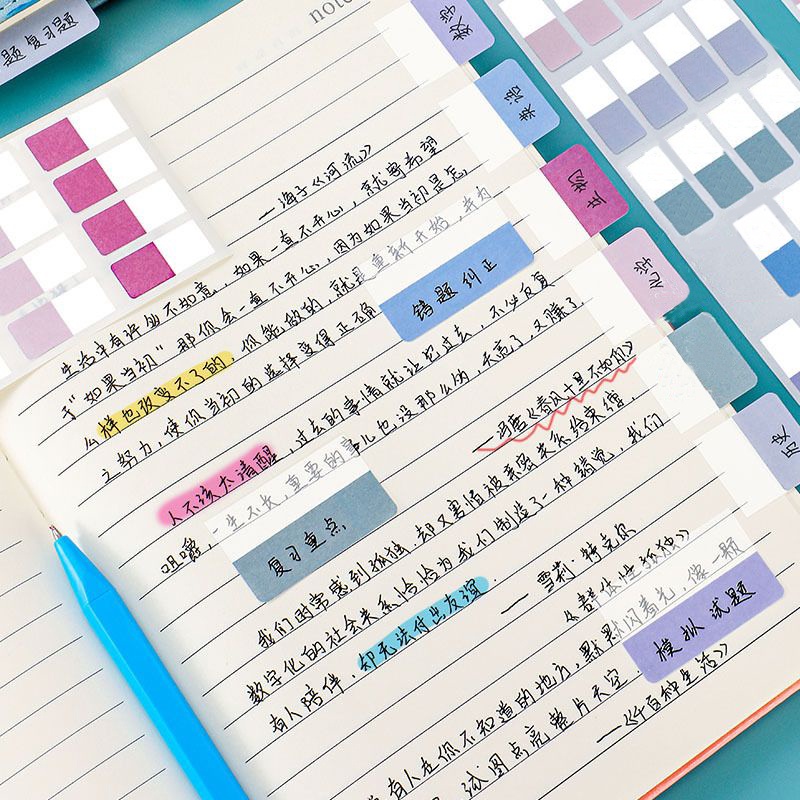 题复习题
note
英语
生物
历史
——海子《河流》
生活中有许多不如意，如果一直不开心，就寄希望
于“如果当初”那你会一直不开心，因为如果当初是怎
么样也改变不了的，你能做的，就是重新开始，并为
之努力，使你当初的选择变得正确
错题纠正
人不该太清醒，过去的事情就让它过去，不必反复
咀嚼，一生不长，重要的事儿也没那么的，天高了，又赚了，
——冯唐《春风十里不如你》
复习重点
我们时常感到孤独，却又害怕被亲密关系给束缚，
数字化的社会关系恰恰为我们制造了一种错觉，我们
有人陪伴，却无法付出友谊，
——雪莉·特克尔
《群体性孤独》
没有人在你不知道的地方，默默闪着光，像一颗
试图点亮整片天空
模拟试题
——《千百种生活》